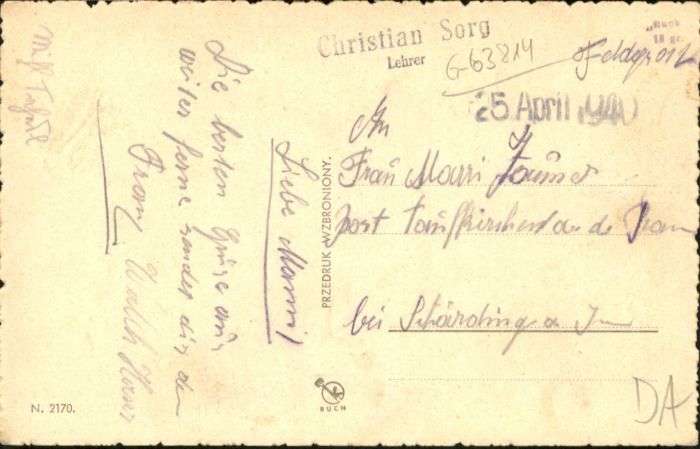 Christian Sorg
Lehrer
G-63814
Feldpost
25. April 1940
An
Frau Marri
Post Taufkirchen an de Pram
bei Schärding a Inn
Liebe Manni!
Die besten Grüse aus
weiter ferne sendet dir de
Franz
PRZEDRUK WZBRONIONY.
RUCH
N. 2170.
DA